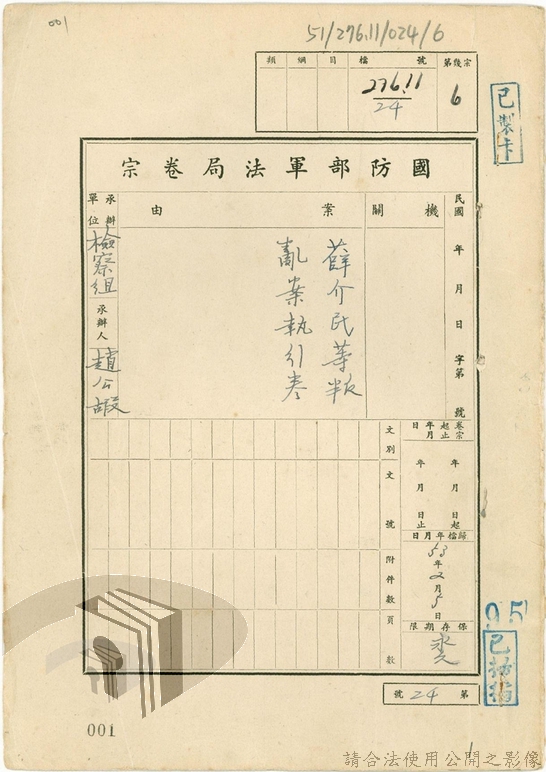 001
51/276.11/024/6
類 綱 目 檔 號 第幾宗
276.11
24
6
已製卡
國防部軍法局卷宗
民國 年 月 日 字第 號
機關
案由
承辦單位
檢察組
承辦人
趙公嘏
薛介民等叛
亂案執行卷
卷宗起止年月日
年 月 日起
年 月 日止
歸檔年月日
53年2月5日
保存期限
永久
文別
文號
附件數
頁數
95
已抽檔
第 24 號
001
1
請合法使用公開之影像